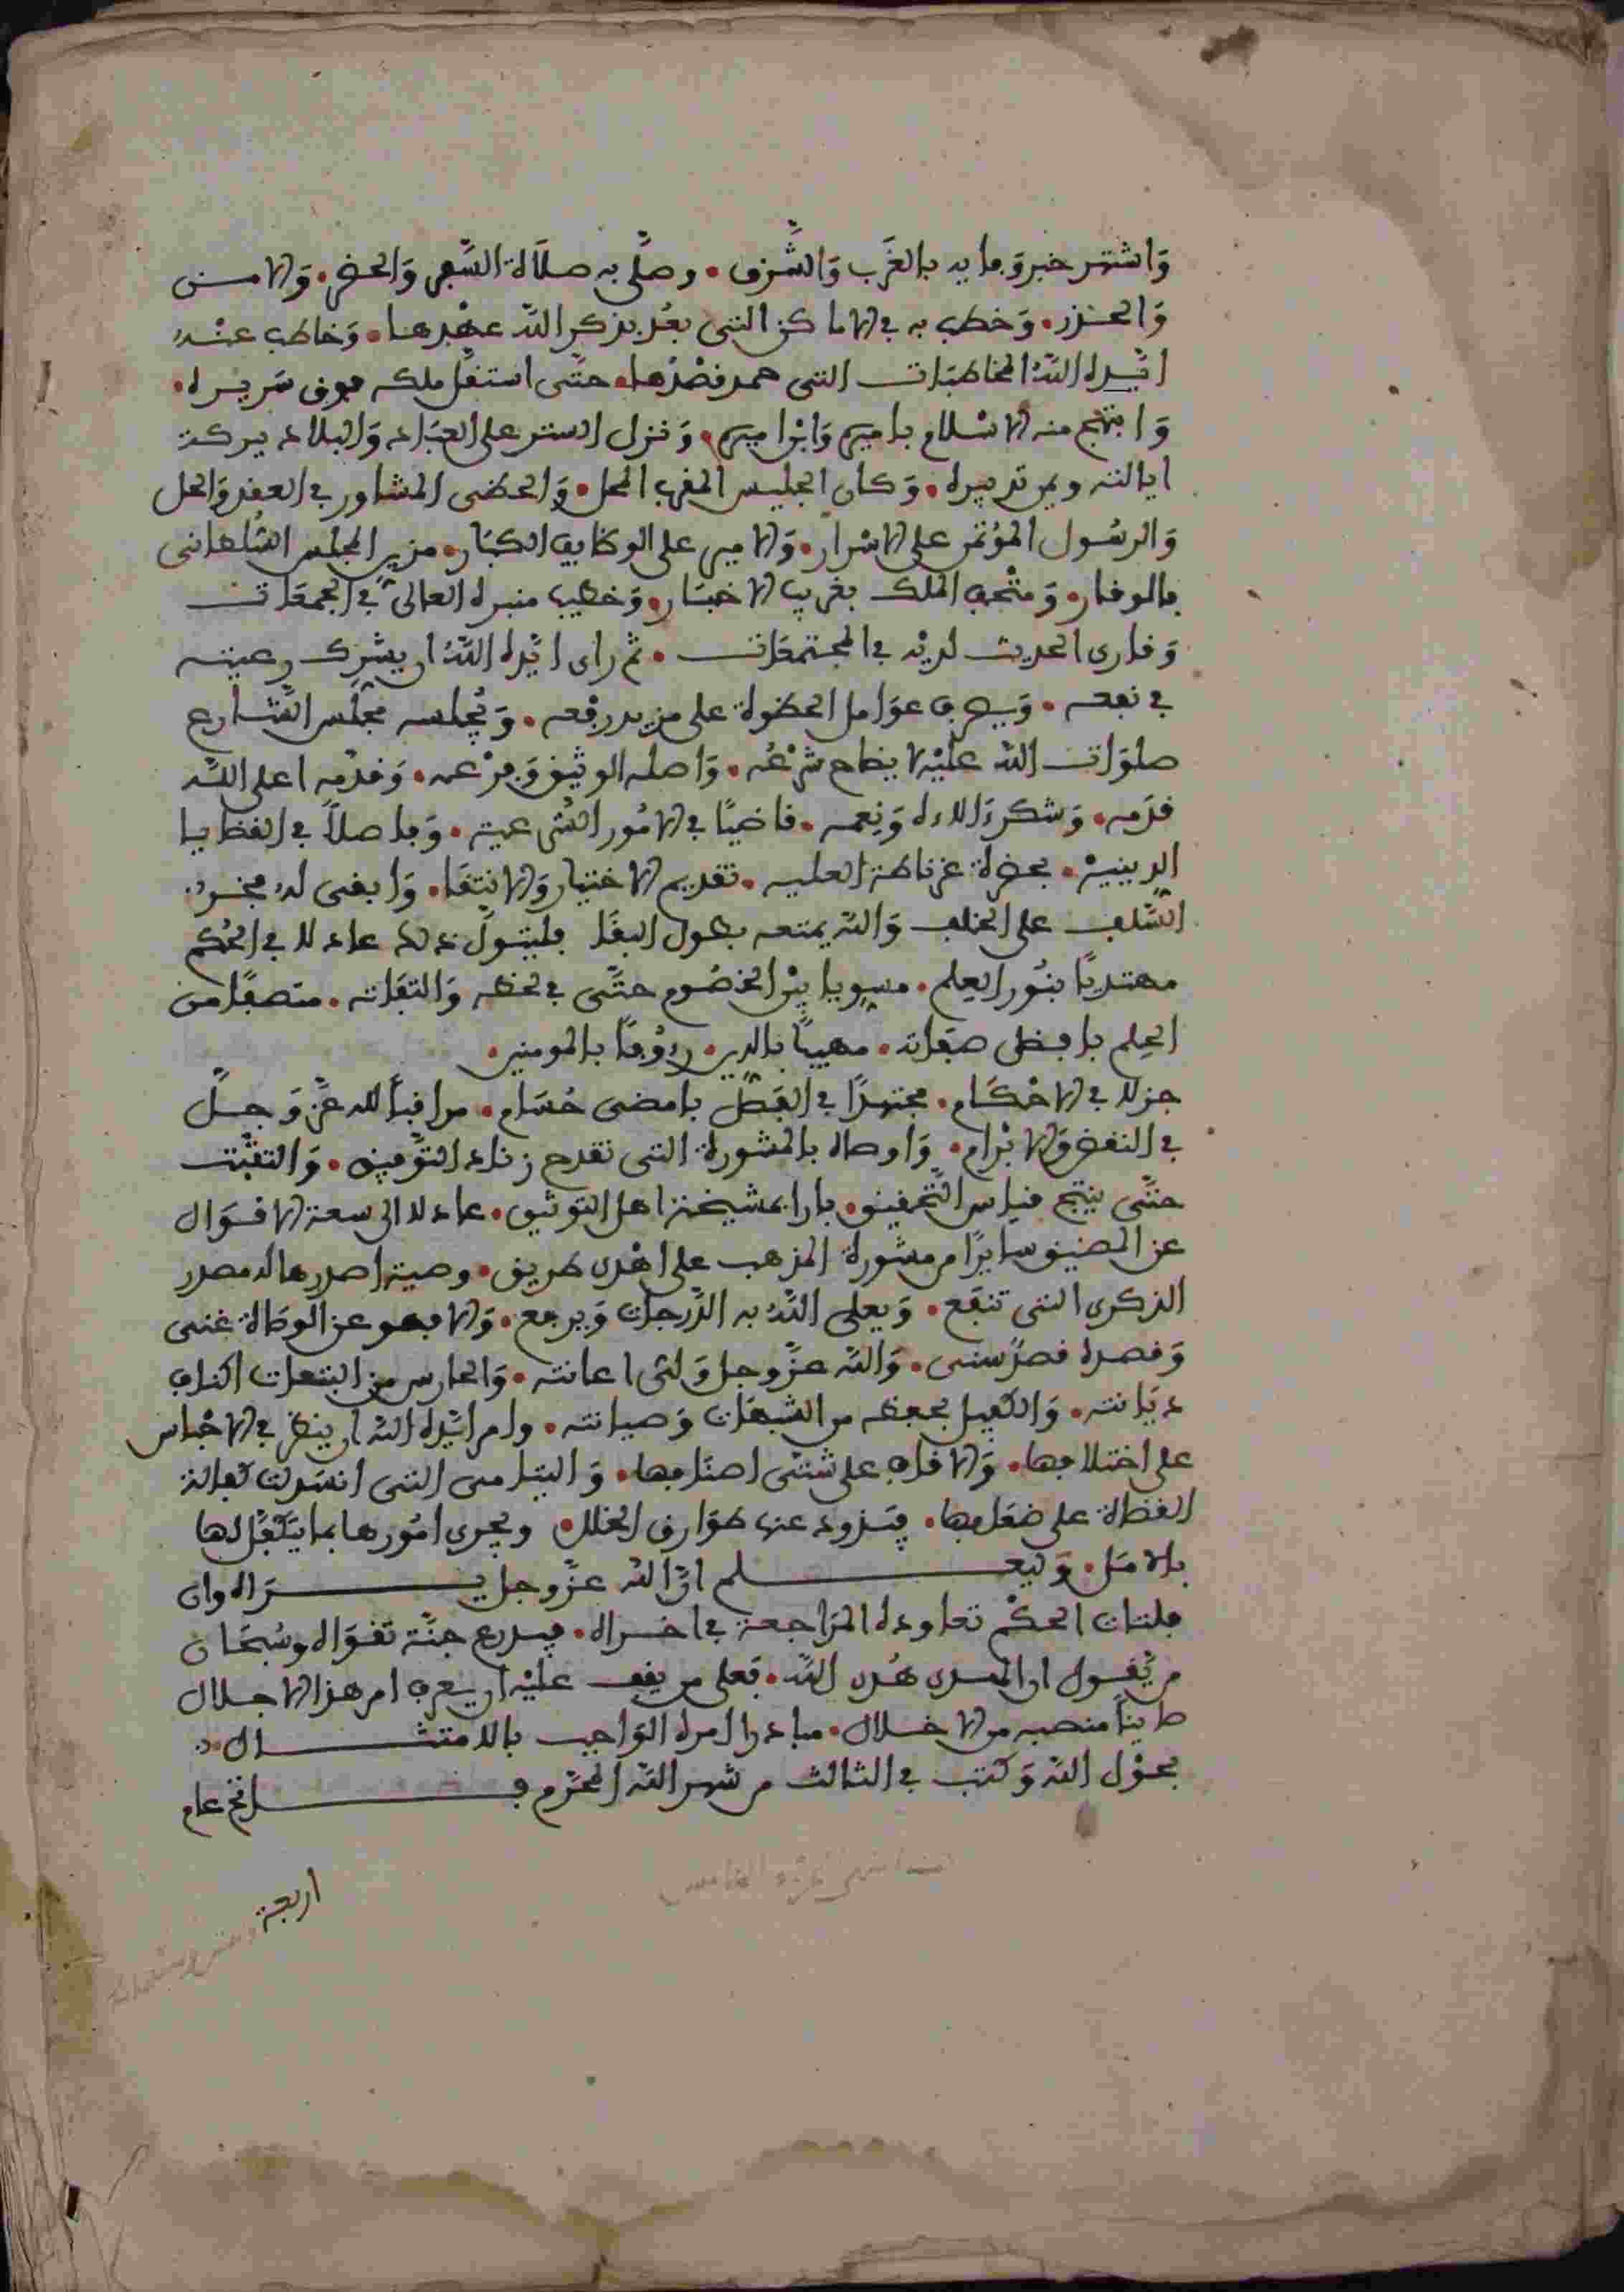 وَاشتهر خبر وَفايه بالغَرب وَالشَّرق • وصلَّى به صلَاة السَّفر وَالحضر • وَالامن
وَالحذر • وَخطب به في الاماكن التي بعُد بذكر الله عهْدها • وَخاطب عنْه
ايَّده اللهُ المخاطبَات التي حمد قصْدُها • حتَّى استقل ملكه فوق سَريره •
وَابتهج منه الاسْلام بامير وَابْن اميره • وَنزل الستر على العبَاد وَالبلاد ببركة
ايالته ويمن تدبيره • وَكان الجليس المقرب المحل • وَالحظي المشاور في العقد وَالحل
وَالرسُول المؤتمن على الاسْرار • وَالامين على الوظايف الكبَار • مزين المجلس السُّلطاني
بالوقار • وَمتْحف الملك بغريب الاخبَار • وَخطيب منبره العالي في الجمعَات
وَقاري الحديث لديْه في المجتمعَات • ثم راى ايَّده اللهُ ان يشرك رعيته
في نفعه • وَيصرف عوَامل الحظوة على مزيد رفْعه • وَيُجلسه مجْلس الشَّارع
صلوَات الله عليْه لايضاح شرْعُه • وَاصله الوثيق وَفرْعه • وَقدَّمه اعلى الله
قدَمه • وَشكر ءَالاءه وَنِعمه • قاضيًا في الامُور الشَّرعية • وَفاصلاً في القضايا
الدينيَّة • بحضرة غرناطة العلية • تقديم الاختيار وَالانتقَا • وَابقى له فخر
السَّلف على الخلف وَالله يمتعه بطول البقَا فليتَول ذلك عادلا في الحُكم
مهتديًا بنُور العِلم • مسويا بيْن الخصُوم حتَّى في لحظه وَالتفَاته • متصفًا من
الحِلم بافضل صفَاته • مهيبًا بالدين • رءُوفًا بالمومنين •
جزلا في الاحْكَام • مجتهدًا في الفَصْل بامضى حُسَام • مراقبًا لله عزَّ وَجلَّ
في النقض وَالابْرام • وَاوصاه بالمشورة التي تقدح زناد التوَّفيق • وَالتثبُّت
حتَّى ينتج قياس التَّحقيق • بارا بمشيخة اهل التوثيق • عادلا الى سعة الاقوَال
عن المضيق سايرًا من مشورة المذهب على اهْدى طريق • وصية اصدرها له مصدر
الذكرى التي تنفَع • وَيعلي اللهُ به الدَّرجات وَيرفع • وَالا فهو عن الوصَاة غني
وَقصده قصدٌ سني • وَالله عزَّ وجل وَلي اعانته • وَالحارس من التبعات اكناف
ديَانته • وَالكفيل بحفظه من الشبهَات وَصيانته • وامر ايَّده الله ان ينظر في الاحْباس
على اختلافها • وَالاوقاف على شتَّى اصنَافها • وَاليتَامى التي انسَدلت كفالة
القضاة على ضعَافها • فيَذود عنها طوَارق الخلل • ويجري امُورها بما يتكَفل لها
بالامَل • وَليعـــلم انَّ الله عزَّ وجل يـــرَاه وان
فلتات الحكْم تعاوده المرَاجعة في اخراه • فيدرع جنَّة تقوَاه وسُبحَان
من يَّقول ان الهدى هُدى الله • فعلى من يقف عليْه ان يعرف امر هذا الاجلال
صاينًا منصبه من الاخلال • مبادرا امره الوَاجب بالامتثـــال ..
بحوْل الله وَكتب في الثالث من شهر الله المحرَّم فـــاتح عام
اربعة وستين وسبعماية